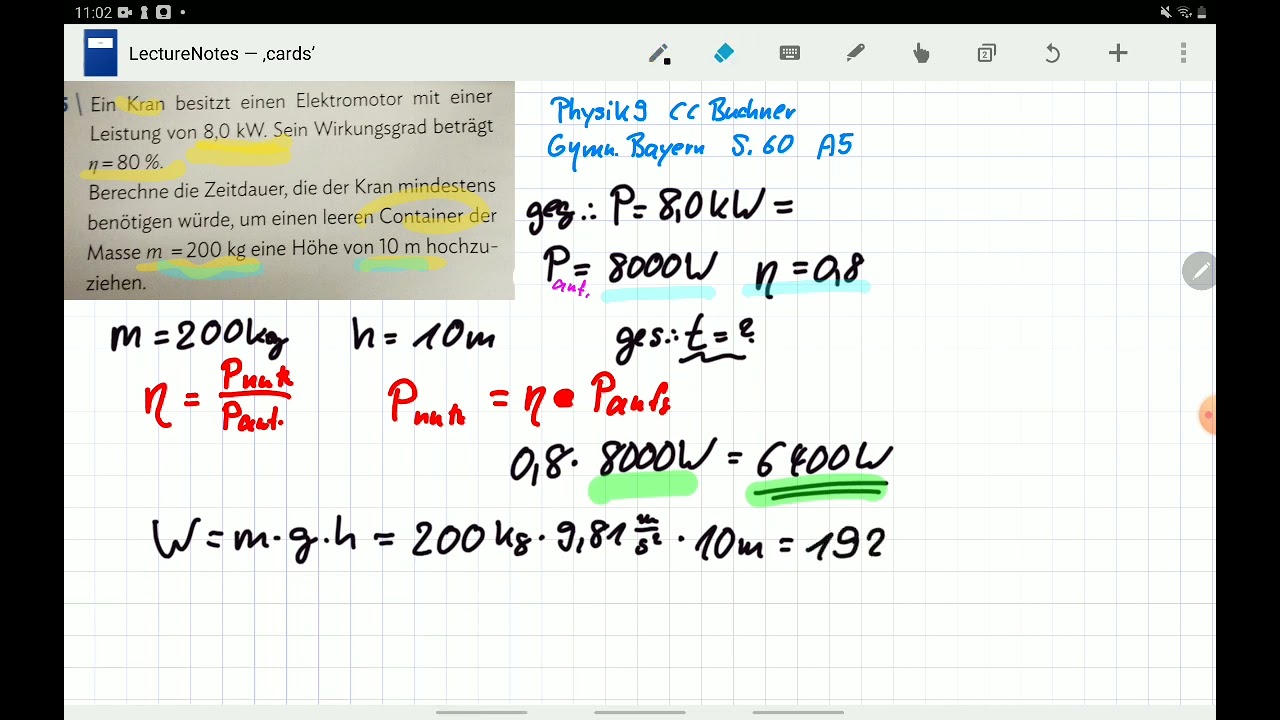 11:02
LectureNotes – ‚cards‘
2
5 | Ein Kran besitzt einen Elektromotor mit einer
Leistung von 8,0 kW. Sein Wirkungsgrad beträgt
η = 80 %.
Berechne die Zeitdauer, die der Kran mindestens
benötigen würde, um einen leeren Container der
Masse m = 200 kg eine Höhe von 10 m hochzu-
ziehen.
Physik 9 CC Buchner
Gymn. Bayern S. 60 A5
geg.: P = 8,0 kW =
P auf. = 8000W η = 0,8
m = 200kg h = 10m ges.: t = ?
η = Pnutz / Pauf. Pnutz = η • Paufs
0,8 · 8000W = 6400W
W = m · g · h = 200 kg · 9,81 m/s² · 10m = 192